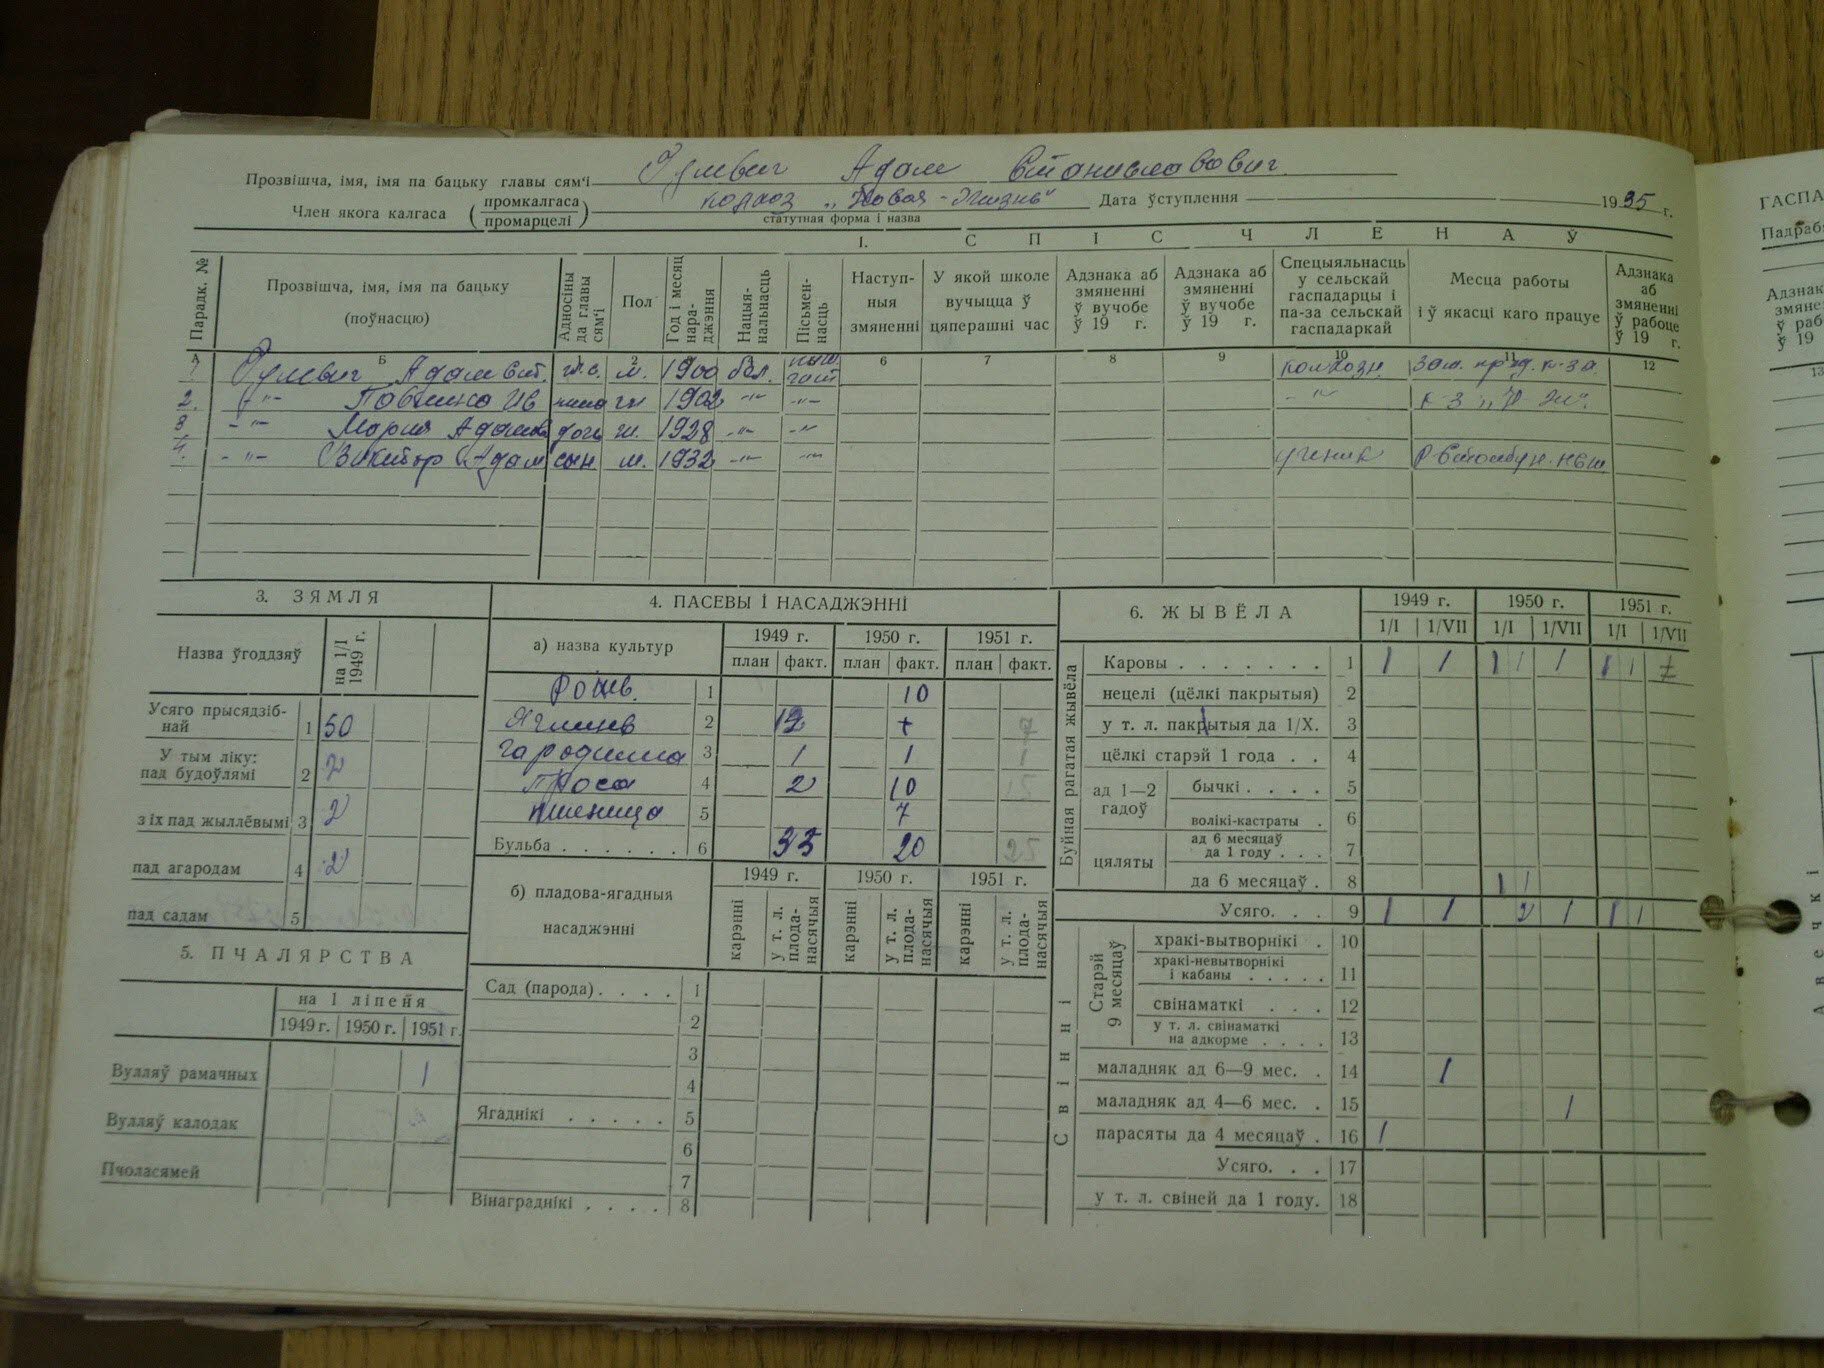 Прозвішча, імя, імя па бацьку главы сям'і Адам Станиславович
Член якога калгаса (промкалгаса промарцелі) колхоз „Новая-Жизнь" Дата ўступлення 1935 г.
статутная форма і назва
1. СПІС ЧЛЕНАЎ
Парадк. № Прозвішча, імя, імя па бацьку (поўнасцю) Адносіны да главы сям'і Пол Год і месяц нараджэння Нацыянальнасць Пісьменнасць Наступныя змяненні У якой школе вучыцца ў цяперашні час Адзнака аб змяненні ў вучобе ў 19 г. Адзнака аб змяненні ў вучобе ў 19 г. Спецыяльнасць у сельскай гаспадарцы і па-за сельскай гаспадаркай Месца работы і ў якасці каго працуе Адзнака аб змяненні ў рабоце ў 19 г.
А Б 2 6 7 8 9 10 11 12
1 Адам Ст. гл.с. м. 1900 бел. колхозн.
2. -"- 1902 -"- -"- -"-
3 -"- Мария Адамов дочь ж. 1928 -"- -"-
4. -"- Виктор Адам сын м. 1932 -"- -"- ученик
3. ЗЯМЛЯ
Назва ўгоддзяў на 1/I 1949 г.
Усяго прысядзібнай 1 50
У тым ліку: пад будоўлямі 2 2
з іх пад жыллёвымі 3 2
пад агародам 4 2
пад садам 5
5. ПЧАЛЯРСТВА
на 1 ліпеня
1949 г. 1950 г. 1951 г.
Вулляў рамачных 1
Вулляў калодак
Пчоласямей
4. ПАСЕВЫ І НАСАДЖЭННІ
а) назва культур 1949 г. 1950 г. 1951 г.
план факт. план факт. план факт.
1 10
Ячмень 2 12 + 7
гародніна 3 1 1 1
Проса 4 2 10 15
пшеница 5 7
Бульба . . . . . . 6 35 20 25
б) пладова-ягадныя насаджэнні 1949 г. 1950 г. 1951 г.
карэнні у т. л. плоданасячыя карэнні у т. л. плоданасячыя карэнні у т. л. плоданасячыя
Сад (парода) . . . . 1
2
3
4
Ягаднікі . . . . . 5
6
7
Вінаграднікі . . . . 8
6. ЖЫВЁЛА 1949 г. 1950 г. 1951 г.
1/I 1/VII 1/I 1/VII 1/I 1/VII
Буйная рагатая жывёла
Каровы . . . . . . . 1 1 1 1 1 1 1 1
нецелі (цёлкі пакрытыя) 2
у т. л. пакрытыя да 1/X. 3
цёлкі старэй 1 года . . 4
ад 1—2 гадоў бычкі . . . . 5
волікі-кастраты . 6
цяляты ад 6 месяцаў да 1 году . . . 7
да 6 месяцаў . 8 1 1
Усяго. . . 9 1 1 2 1 1 1
Свінні
Старэй 9 месяцаў хракі-вытворнікі . 10
хракі-невытворнікі і кабаны . . . . . 11
свінаматкі . . . 12
у т. л. свінаматкі на адкорме . . . . 13
маладняк ад 6—9 мес. . 14 1
маладняк ад 4—6 мес. . 15 1
парасяты да 4 месяцаў . 16 1
Усяго. . . 17
у т. л. свіней да 1 году. 18
ГАСПА
Падраб
Адзнак
змяне
ў раб
ў 19
13
Авечкі